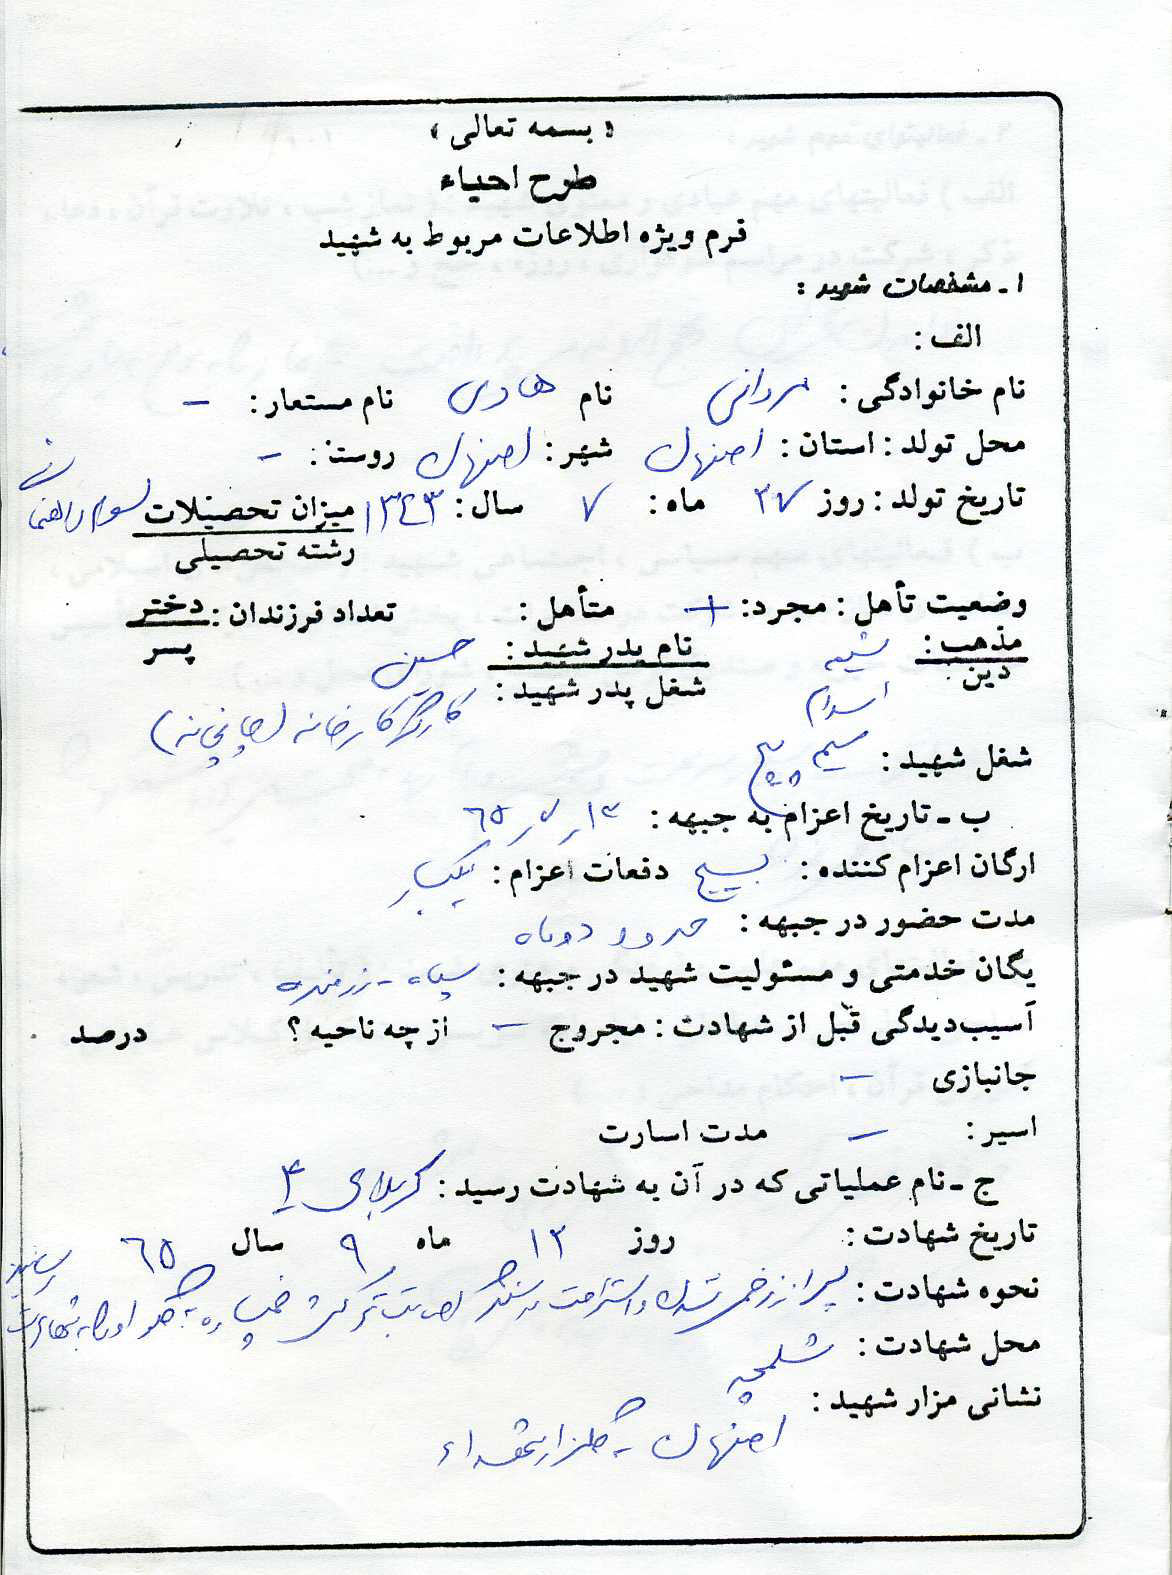 « بسمه تعالی »
طرح احیاء
فرم ویژه اطلاعات مربوط به شهید
۱ـ مشخصات شهید :
الف :
نام خانوادگی : مردانی نام هادی نام مستعار : –
محل تولد : استان : اصفهان شهر : اصفهان روستا : –
تاریخ تولد : روز ۲۷ ماه : ۷ سال : ۱۳۴۳ میزان تحصیلات سوم راهنمائی
رشته تحصیلی
وضعیت تأهل : مجرد : + متأهل : تعداد فرزندان : دختر
پسر
مذهب : شیعه نام پدر شهید : حسین
دین : اسلام شغل پدر شهید : کارگر کارخانه (
شغل شهید : سیم پیچ
ب ـ تاریخ اعزام به جبهه : ۱۳ر۷ر۶۵
ارگان اعزام کننده : بسیج دفعات اعزام : یکبار
مدت حضور در جبهه : حدود دو ماه
یگان خدمتی و مسئولیت شهید در جبهه : سپاه - رزمنده
آسیب‌دیدگی قبل از شهادت : مجروح – از چه ناحیه ؟ درصد
جانبازی –
اسیر : – مدت اسارت
ج ـ نام عملیاتی که در آن به شهادت رسید : کربلای ۴
تاریخ شهادت : روز ۱۲ ماه ۹ سال ۶۵
نحوه شهادت : پس از زخمی شدن و استراحت در سنگر اصابت ترکش خمپاره به گلو او را به شهادت رسانید
محل شهادت : شلمچه
نشانی مزار شهید :
اصفهان - گلزار شهداء